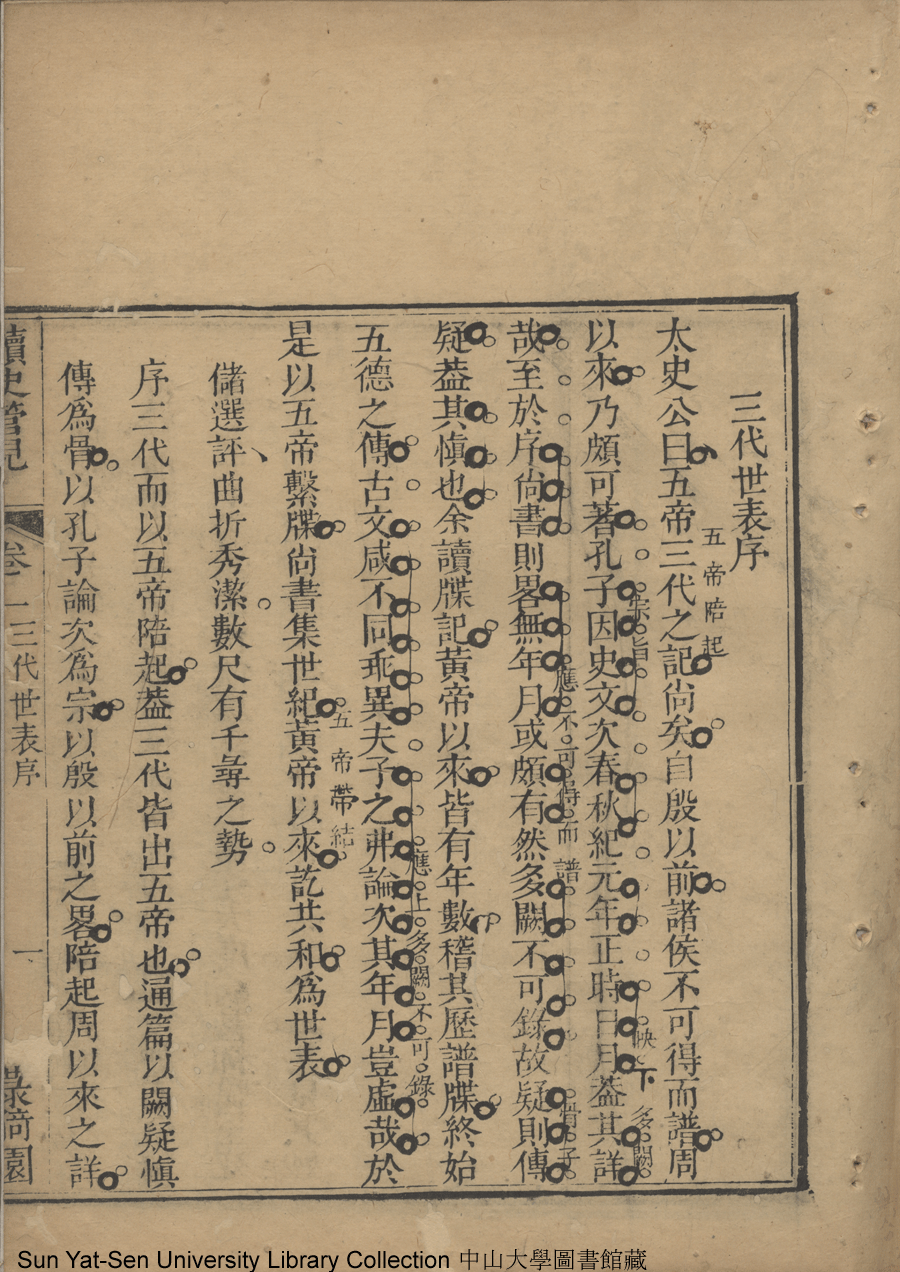 三代世表序
太史公曰五帝三代之記尙矣自殷以前諸侯不可得而譜周
五帝陪起
以來乃頗可著孔子因史文次春秋紀元年正時日月葢其詳
宗旨
映下多闕
哉至於序尙書則畧無年月或頗有然多闕不可錄故疑則傳
應不可得而譜
骨子
疑葢其慎也余讀牒記黃帝以來皆有年數稽其歷譜牒終始
五德之傳古文咸不同乖異夫子之弗論次其年月豈虛哉於
應上多闕不可錄
是以五帝繫牒尙書集世紀黃帝以來訖共和為世表
五帝帶結
儲選評曲折秀潔數尺有千尋之勢
序三代而以五帝陪起葢三代皆出五帝也通篇以闕疑慎
傳為骨以孔子論次為宗以殷以前之畧陪起周以來之詳
讀史管見
卷一 三代世表序
一
園
Sun Yat-Sen University Library Collection 中山大學圖書館藏